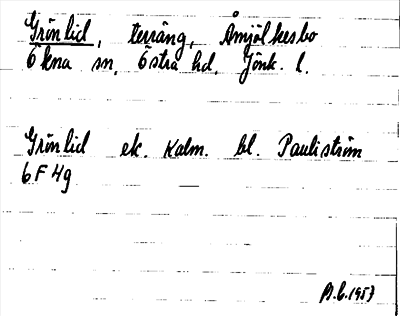 Grönlid, terräng, Åmjölkesbo
Ökna sn, Östra hd, Jönk. l.
Grönlid ek. Kalm. bl. Pauliström
6 F 4g
1953